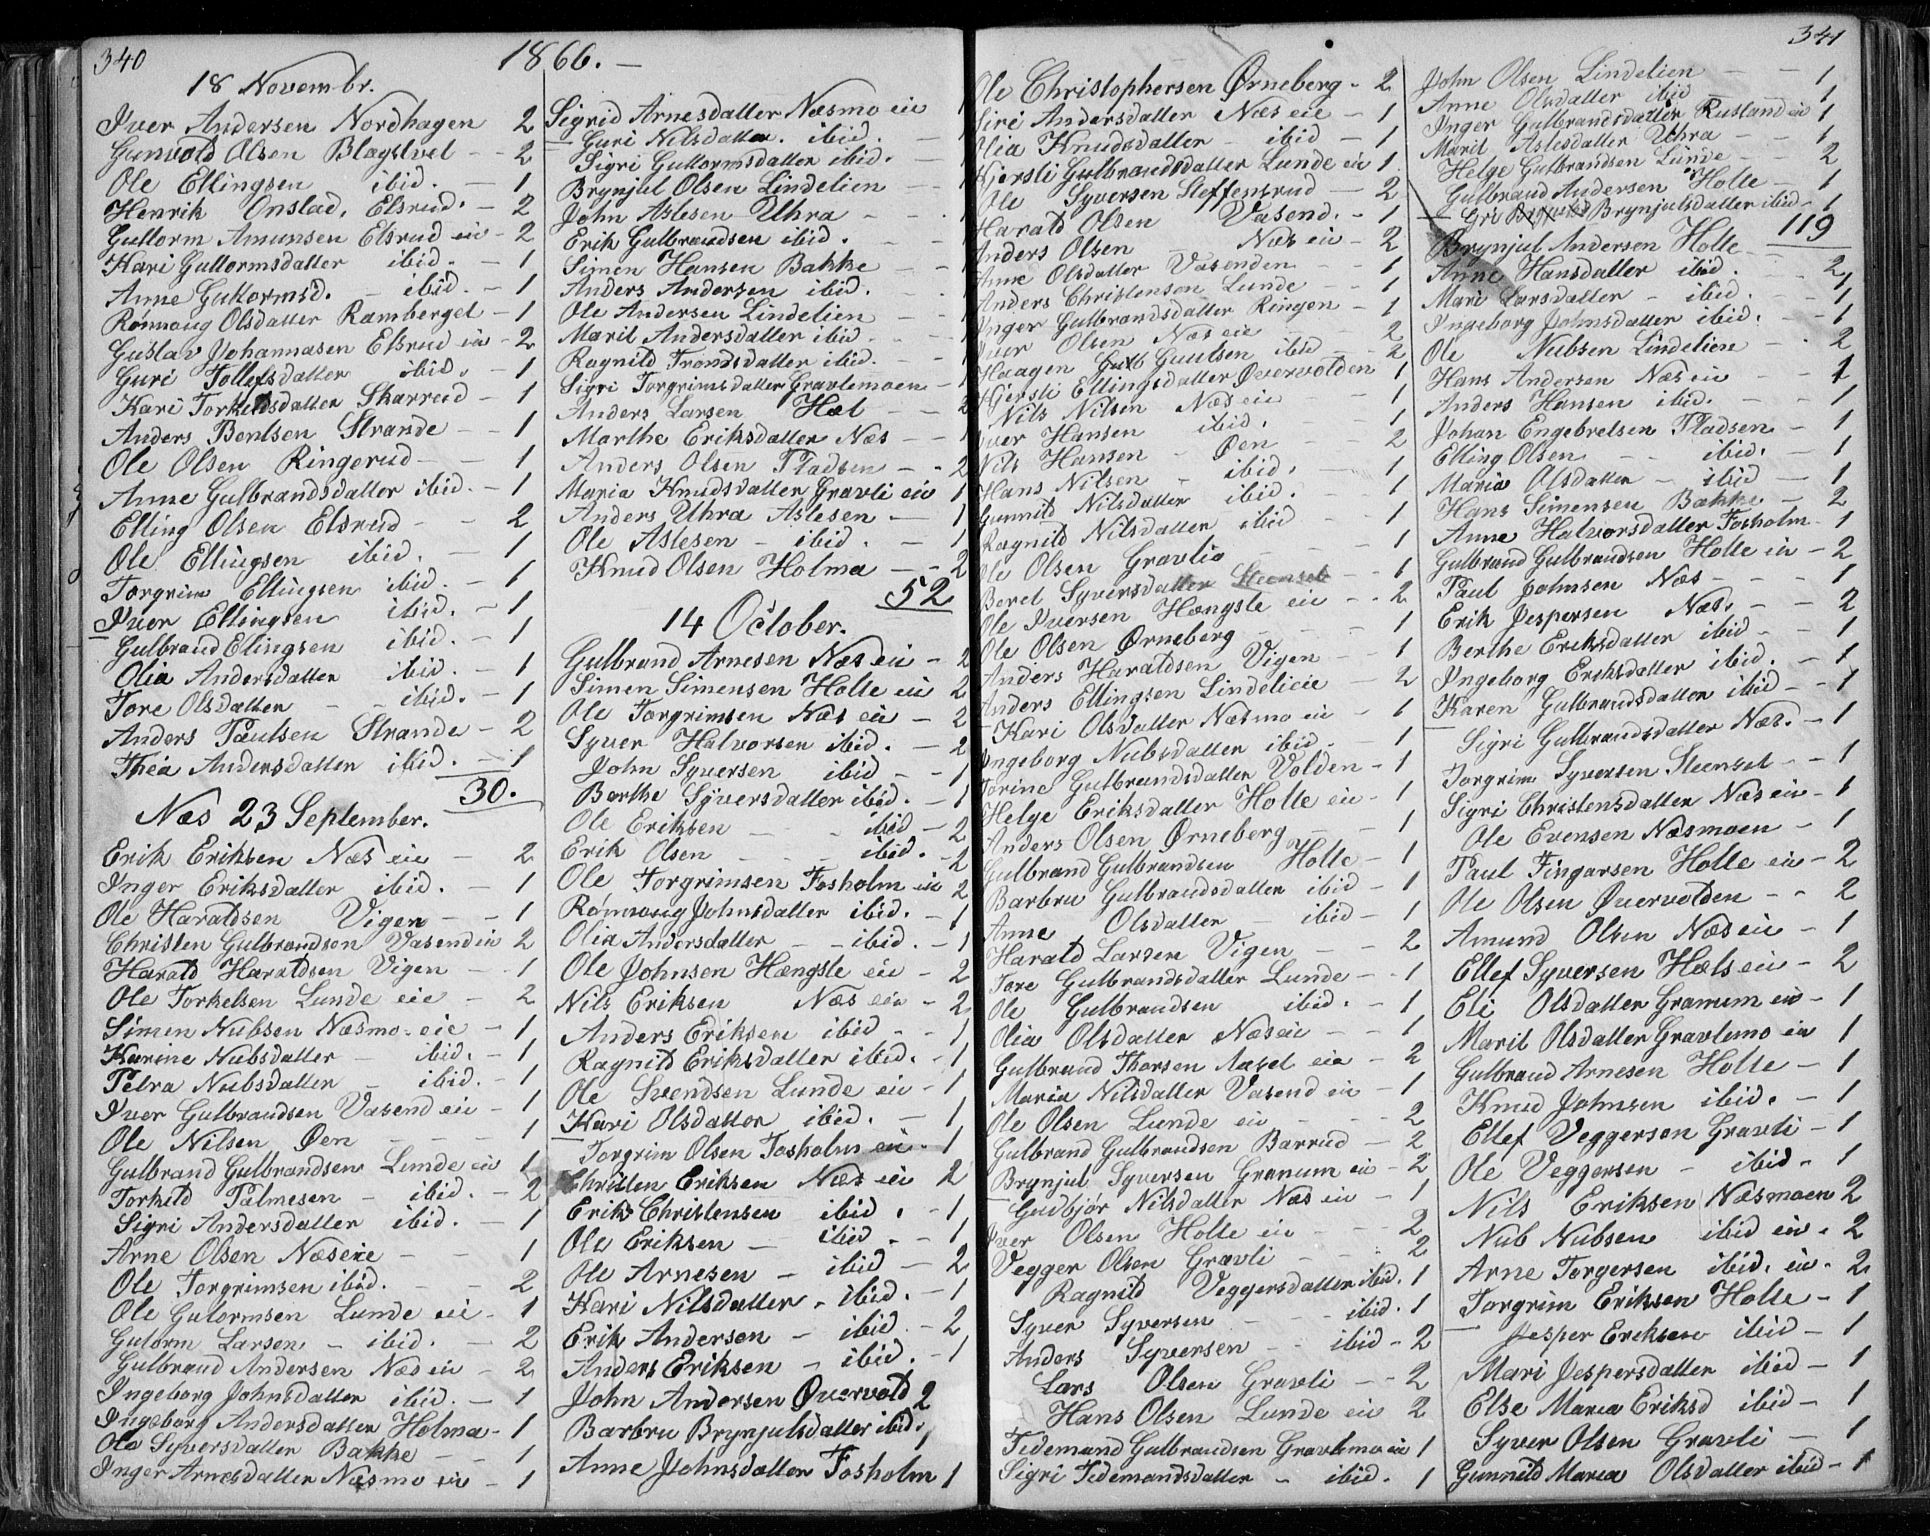 340
1866. —
18 Novembr.
Iver Andersen Nordhagen 2
Gunvold Olsen Blagstvet - 2
Ole Ellingsen ibid. - 1
Henrik Onstad, Elsrud. - 2
Guttorm Amunsen Elsrud eie - 2
Kari Guttormsdatter ibid. - 1
Anne Guttormsd. - ibid. - 1
Rønnaug Olsdatter Ramberget - 1
Gustav Johannesen Elsrud eie - 2
Guri Tollefsdatter ibid. - 1
Kari Torkildsdatter Skarrud - 1
Anders Bentsen Strande - 1
Ole Olsen Ringerud - 1
Anne Gulbrandsdatter ibid. - 1
Elling Olsen Elsrud - 2
Ole Ellingsen ibid. - 1
Torgrim Ellingsen ibid. - 1
Iver Ellingsen ibid. - 1
Gulbrand Elingsen ibid. - 1
Olia Andersdatter ibid. - 1
Tore Olsdatter - ibid. - 1
Anders Paulsen Strande - 2
Thea Andersdatter ibid. - 1
30.
Næs 23 September.
Erik Eriksen Næs eie - 2
Inger Eriksdatter ibid. - 1
Ole Haraldsen Vigen - - 1
Christen Gulbrandsen Vasend eie 2
Harald Haraldsen Vigen - 1
Ole Torkelsen Lunde eie - 2
Simen Nubsen Næsmo eie - 1
Karine Nubsdatter - ibid. - 1
Petra Nubsdatter - ibid. - 1
Iver Gulbrandsen Vasend eie - 1
Ole Nilsen Øen - - - 1
Gulbrand Gulbrandsen Lunde eie 1
Torkild Palmesen - ibid. - 2
Sigri Andersdatter ibid. - 1
Arne Olsen Næs eie - - 1
Ole Torgrimsen ibid. - - 2
Ole Gutormsen Lunde eie - 1
Gutorm Larsen - ibid. - 2
Gulbrand Andersen Næs eie - 2
Ingeborg Johnsdatter ibid. - 1
Ingeborg Andersdatter Holma - 1
Ole Syversdatter Bakke - - 1
Inger Arnesdatter Næsmo eie - 1
Sigrid Arnesdatter Næsmo eie 1
Guri Nilsdatter. ibid. 1
Sigri Guttormsdatter ibid. - 1
Brynjul Olsen Lindelien - - 1
John Aslesen Uhra - - . 1
Erik Gulbrandsen ibid. - 1
Simen Hansen Bakke - - 1
Anders Andersen ibid. . 1
Ole Andersen Lindelien - 1
Marit Andersdatter ibid. - 1
Ragnild Trondsdatter ibid. - 1
Sigri Torgrimsdatter Gravlemoen - 1
Anders Larsen Hæl - - 2
Marthe Eriksdatter Næs - - 1
Anders Olsen Pladsen - - 2
Maria Knudsdatter Gravli eie 1
Anders Uhra Aslesen - 1
Ole Aslesen - ibid. - 1
Knud Olsen Holma - - 2
52
14 October.
Gulbrand Arnesen Næs eie - 2
Simen Simensen Holte eie 2
Ole Torgrimsen Næs eie - 2
Syver Halvorsen ibid. - 2
John Syversen ibid - - 1
Berthe Syversdatter ibid. - 1
Ole Eriksen - - ibid - 2
Erik Olsen - - ibid. - 2
Ole Torgrimsen Fosholm eie 2
Rønnaug Johnsdatter ibid. - 1
Olia Andersdatter - - ibid. - 1
Ole Johnsen Hængsle eie - 2
Nils Eriksen Næs eie - 2
Anders Eriksen ibid - - 1
Ragnild Eriksdatter ibid. - 1
Ole Svendsen Lunde eie - 1
Kari Olsdatter ibid. - 1
Torgrim Olsen Fosholm eie - 1
Christen Eriksen Næs eie 2
Erik Christensen ibid. - 1
Ole Eriksen - ibid. - 1
Ole Arnesen - ibid - 2
Kari Nilsdatter - ibid. - 1
Erik Andersen - ibid. - 2
Anders Eriksen - ibid. - 1
John Andersen Øvervold 2
Barbru Brynjulsdatter ibid, 1
Anne Johnsdatter Fosholm 1
341
Ole Christophersen Ørneberg - 2
Siri Andersdatter Næs eie - 1
Olia Knudsdatter - ibid - 1
Kjersti Gulbrandsdatter Lunde eie 1
Ole Syversen Steffensrud - 2
Harald Olsen Vasend. - 1
Anders Olsen - Næs eie - 2
Anne Olsdatter Vasenden - 1
Anders Christensen Lunde - 1
Inger Gulbrandsdatter Ringen - 1
Iver Olsen Næs eie - - 2
Haagen Guulsen ibid - - 2
Kjersti Ellingsdatter Øvervolden 1
Nils Nilsen Næs eie - - 1
Iver Hansen ibid. - - 1
Nils Hansen - Øen - - 2
Hans Nilsen - ibid. - 1
Gunnild Nilsdatter ibid. - 1
Ragnild Nilsdatter ibid - - 1
Ole Olsen Gravlia - - - 1
Beret Syversdatter Steenset - - 1
Ole Iversen Hængsle eie - - 2
Ole Olsen Ørneberg - - 1
Anders Haraldsen Vigen - - 1
Anders Ellingsen Lindelieie - 2
Kari Olsdatter Næsmo eie - 1
Ingeborg Nubsdatter ibid. - 1
Torine Gulbrandsdatter Volden - 1
Helge Eriksdatter Holte eie - 1
Anders Olsen Ørneberg - - 1
Gulbrand Gulbrandsen Holte - 1
Barbru Gulbrandsdatter ibid - 1
Anne Olsdatter - ibid - 1
Harald Larsen Vigen - - 2
Tore Gulbrandsdatter Lunde - - 1
Ole Gulbrandsen ibid. - 1
Olia Olsdatter Næs eie - - 1
Gulbrand Thorsen Aasel eie - 2
Maria Nilsdatter Vasend eie - 1
Ole Olsen Lunde eie - - 2
Gulbrand Gulbrandsen Barrud - 2
Brynjul Syversen Granum eie - 2
Gudbjør Nilsdatter Næs eie - 1
Iver Olsen Holte eie - - 2
Vegger Olsen Gravli - - 2
Ragnild Veggersdatter ibid. 1
Syver Syversen - - ibid. 1
Anders Syversen - - ibid - 2
Lars Olsen Gravli - - 2
Hans Olsen Lunde eie 2
Tidemand Gulbrandsen Gravlemo eie 1
Sigri Tidemandsdatter - ibid. 1
John Olsen Lindelien - - 1
Anne Olsdatter ibid - - 1
Inger Gulbrandsdatter Rustand eie 1
Marit Aslesdatter Uhra - - 1
Helge Gulbrandsen Lunde - - 2
Gulbrand Andersen Holte - 1
Gri Brynjulsdatter ibid - 1
119
Brynjul Andersen Holte - - 2
Anne Hansdatter ibid. - - 1
Mari Larsdatter - ibid. - 1
Ingeborg Johnsdatter ibid. - 1
Ole Nubsen Lindelien - - 2
Hans Andersen Næs eie - - 1
Anders Hansen ibid. - - 1
Johan Engebretsen Pladsen - 1
Elling Olsen - - ibid. - 1
Maria Olsdatter - ibid - 1
Hans Simensen Bakke - 2
Anne Halvorsdatter Fosholm - 1
Gulbrand Gulbrandsen Holte eie - 2
Paul Johnsen Næs - - - 1
Erik Jespersen Næs. - - 2
Berthe Eriksdatter ibid - - 1
Ingeborg Eriksdatter ibid. - 1
Karen Gulbrandsdatter ibid - - 1
Sigri Gulbrandsdatter Næs. - 1
Torgrim Syversen Steenset - - 1
Sigri Christensdatter Næs eie - 1
Ole Evensen Næsmoen - 1
Paul Fingarsen Holte eie - 2
Ole Olsen Øvervolden - - 2
Amund Olsen Næs eie - 1
Ellef Syversen Hæls eie - 2
Eli Olsdatter Granum eie - 1
Marit Olsdatter Gravlemo eie 1
Gulbrand Arnesen Holte - 1
Knud Johnsen ibid. - 1
Ellef Veggersen Gravli - 1
Ole Veggersen - ibid - 1
Nils Eriksen Næsmoen 2
Nub Nubsen ibid eie - 2
Arne Torgersen ibid. eie - 2
Torgrim Eriksen Holte - 1
Jesper Eriksen ibid - 1
Mari Jespersdatter ibid - 1
Else Maria Eriksd ibid - 1
Syver Olsen Gravli - 1
Gunnild Maria Olsdatter ibid - 1